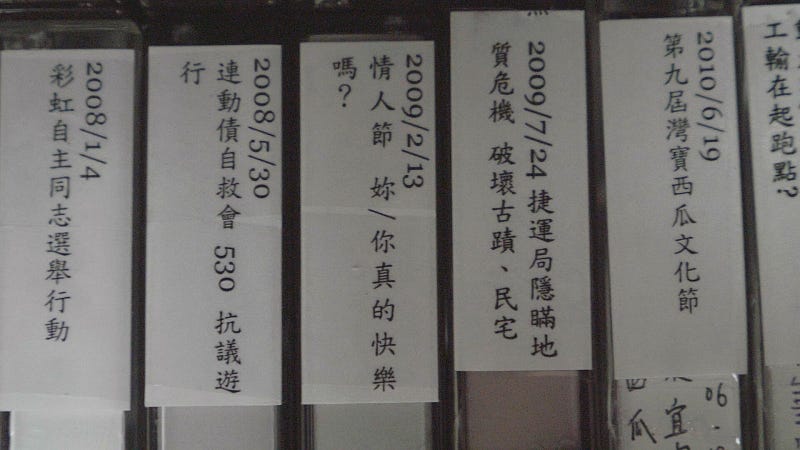 2008/1/4
彩虹自主同志選舉行動
2008/5/30
連動債自救會 530 抗議遊
行
2009/2/13
情人節 妳/你真的快樂
嗎?
2009/7/24 捷運局隱瞞地
質危機 破壞古蹟、民宅
2010/6/19
第九屆灣寶西瓜文化節
工輸在起跑點?
宜
06
瓜